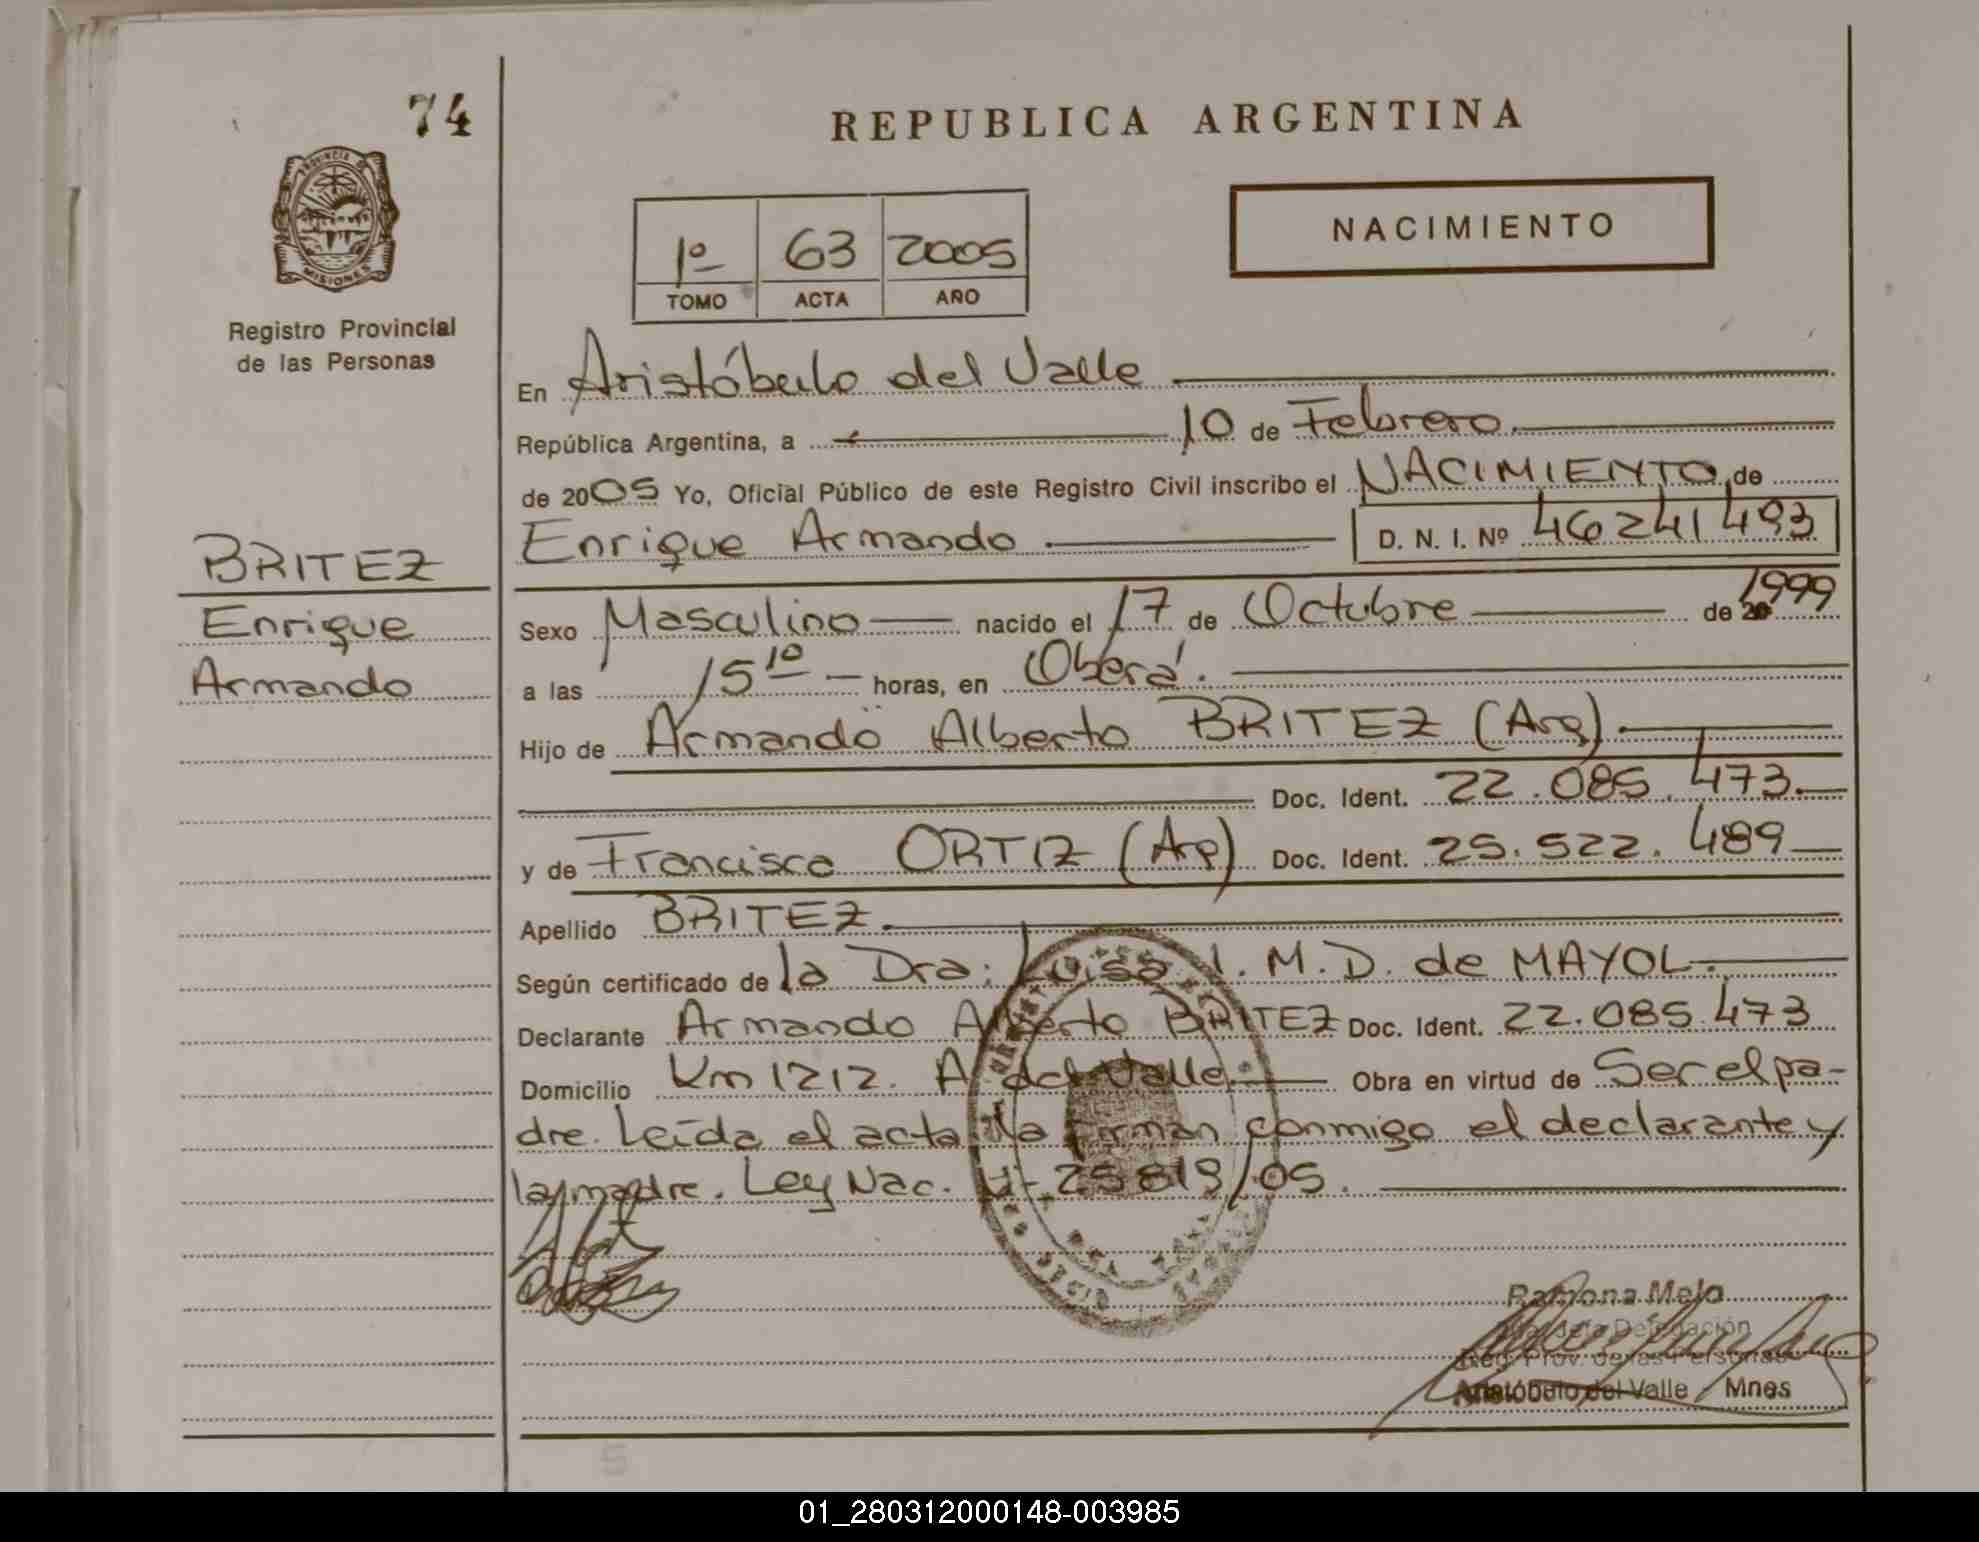 74
REPUBLICA ARGENTINA
PROVINCIA DE
MISIONES
Registro Provincial
de las Personas
1º 63 2005
TOMO ACTA AÑO
NACIMIENTO
En Aristóbulo del Valle
República Argentina, a 10 de Febrero
de 2005 Yo, Oficial Público de este Registro Civil inscribo el NACIMIENTO de
Enrique Armando D. N. I. Nº 46241493
BRITEZ
Enrique
Armando
Sexo Masculino nacido el 17 de Octubre de 1999
a las 15 10 horas, en Oberá.
Hijo de Armando Alberto BRITEZ (Arg)
Doc. Ident. 22.085.473.
y de Francisca ORTIZ (Arg) Doc. Ident. 25.522.489
Apellido BRITEZ
Según certificado de la Dra. Luisa I. M. D. de MAYOL.
Declarante Armando Alberto BRITEZ Doc. Ident. 22.085.473
Domicilio Km 1212. A del Valle. Obra en virtud de Ser el pa-
dre. Leída el acta la firman conmigo el declarante y
la madre. Ley Nac. Nº 25819/05.
Ramona Melo
Delegación
Reg. Prov. de las Personas
Aristóbulo del Valle Mnes
01_280312000148-003985